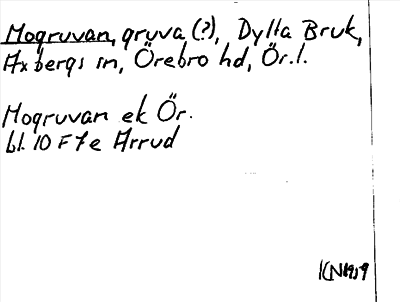 Mogruvan, gruva (?), Dylta Bruk,
Axbergs sn, Örebro hd, Ör.l.
Mogruvan ek Ör.
bl. 10 F 7 e Arrud